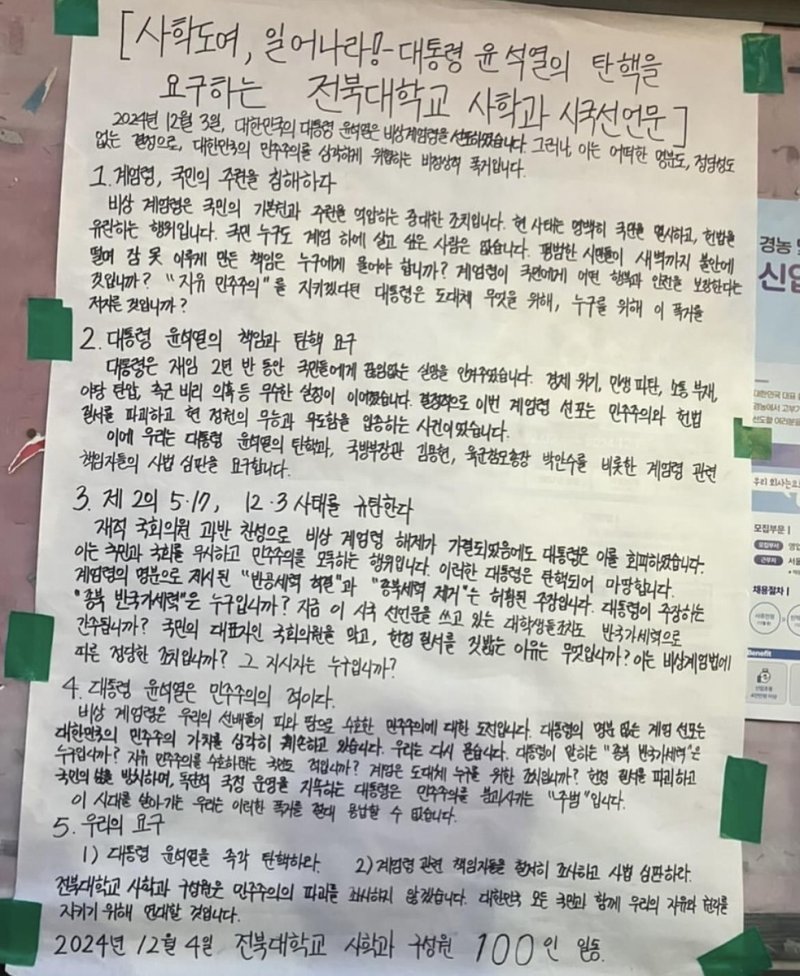 [사학도여, 일어나라!-대통령 윤석열의 탄핵을
요구하는 전북대학교 사학과 시국선언문]
2024년 12월 3일, 대한민국의 대통령 윤석열은 비상계엄령을 선포하였습니다. 그러나, 이는 어떠한 명분도, 정당성도
없는 결정으로, 대한민국의 민주주의를 심각하게 위협하는 비정상적 폭거입니다.
1. 계엄령, 국민의 주권을 침해하다
비상 계엄령은 국민의 기본권과 주권을 억압하는 중대한 조치입니다. 현 사태는 명백히 국민을 멸시하고, 헌법을
유린하는 행위입니다. 국민 누구도 계엄 하에 살고 싶은 사람은 없습니다. 평범한 시민들이 새벽까지 불안에
떨며 잠 못 이루게 만든 책임은 누구에게 물어야 합니까? 계엄령이 국민에게 어떤 행복과 안전을 보장한다는
것입니까? "자유 민주주의"를 지키겠다면 대통령은 도대체 무엇을 위해, 누구를 위해 이 폭거를
저지른 것입니까?
2. 대통령 윤석열의 책임과 탄핵 요구
대통령은 재임 2년 반 동안 국민들에게 끊임없는 실망을 안겨주었습니다. 경제 위기, 민생 파탄, 소통 부재,
야당 탄압, 측근 비리 의혹 등 무수한 실정이 이어졌습니다. 결정적으로 이번 계엄령 선포는 민주주의와 헌법
질서를 파괴하고 현 정권의 무능과 무도함을 입증하는 사건이었습니다.
이에 우리는 대통령 윤석열의 탄핵과, 국방부장관 김용현, 육군참모총장 박안수를 비롯한 계엄령 관련
책임자들의 사법 심판을 요구합니다.
3. 제 2의 5·17, 12·3 사태를 규탄한다
재적 국회의원 과반 찬성으로 비상 계엄령 해제가 가결되었음에도 대통령은 이를 회피하였습니다.
이는 국민과 국회를 무시하고 민주주의를 모독하는 행위입니다. 이러한 대통령은 탄핵되어 마땅합니다.
계엄령의 명분으로 제시된 "반공세력 척결"과 "종북세력 제거"는 허황된 주장입니다. 대통령이 주장하는
"종북 반국가세력"은 누구입니까? 지금 이 시국 선언문을 쓰고 있는 대학생들조차도 반국가세력으로
간주됩니까? 국민의 대표자인 국회의원을 막고, 헌정 질서를 짓밟는 이유는 무엇입니까? 이는 비상계엄법에
따른 정당한 조치입니까? 그 지시자는 누구입니까?
4. 대통령 윤석열은 민주주의의 적이다.
비상 계엄령은 우리의 선배들이 피와 땀으로 수호한 민주주의에 대한 도전입니다. 대통령의 명분 없는 계엄 선포는
대한민국의 민주주의 가치를 심각히 훼손하고 있습니다. 우리는 다시 묻습니다. 대통령이 말하는 "종북 반국가세력"은
누구입니까? 자유 민주주의를 수호하려는 국민도 적입니까? 계엄은 도대체 누구를 위한 조치입니까? 헌정 질서를 파괴하고
국민의 삶을 방치하며, 독단적 국정 운영을 지속하는 대통령은 민주주의를 붕괴시키는 "주범"입니다.
이 시대를 살아가는 우리는 이러한 폭거를 절대 용납할 수 없습니다.
5. 우리의 요구
1) 대통령 윤석열을 즉각 탄핵하라. 2) 계엄령 관련 책임자들을 철저히 조사하고 사법 심판하라.
전북대학교 사학과 구성원은 민주주의의 파괴를 좌시하지 않겠습니다. 대한민국 모든 국민과 함께 우리의 자유와 권리를
지키기 위해 연대할 것입니다.
2024년 12월 4일 전북대학교 사학과 구성원 100인 일동.
경농
신입
대한민국 대표
경농에서 고부가
선도할 여러분을
우리 회사는요
모집부문
모집부서 영업
근무지 서울
채용절차
서류전형
Benefit